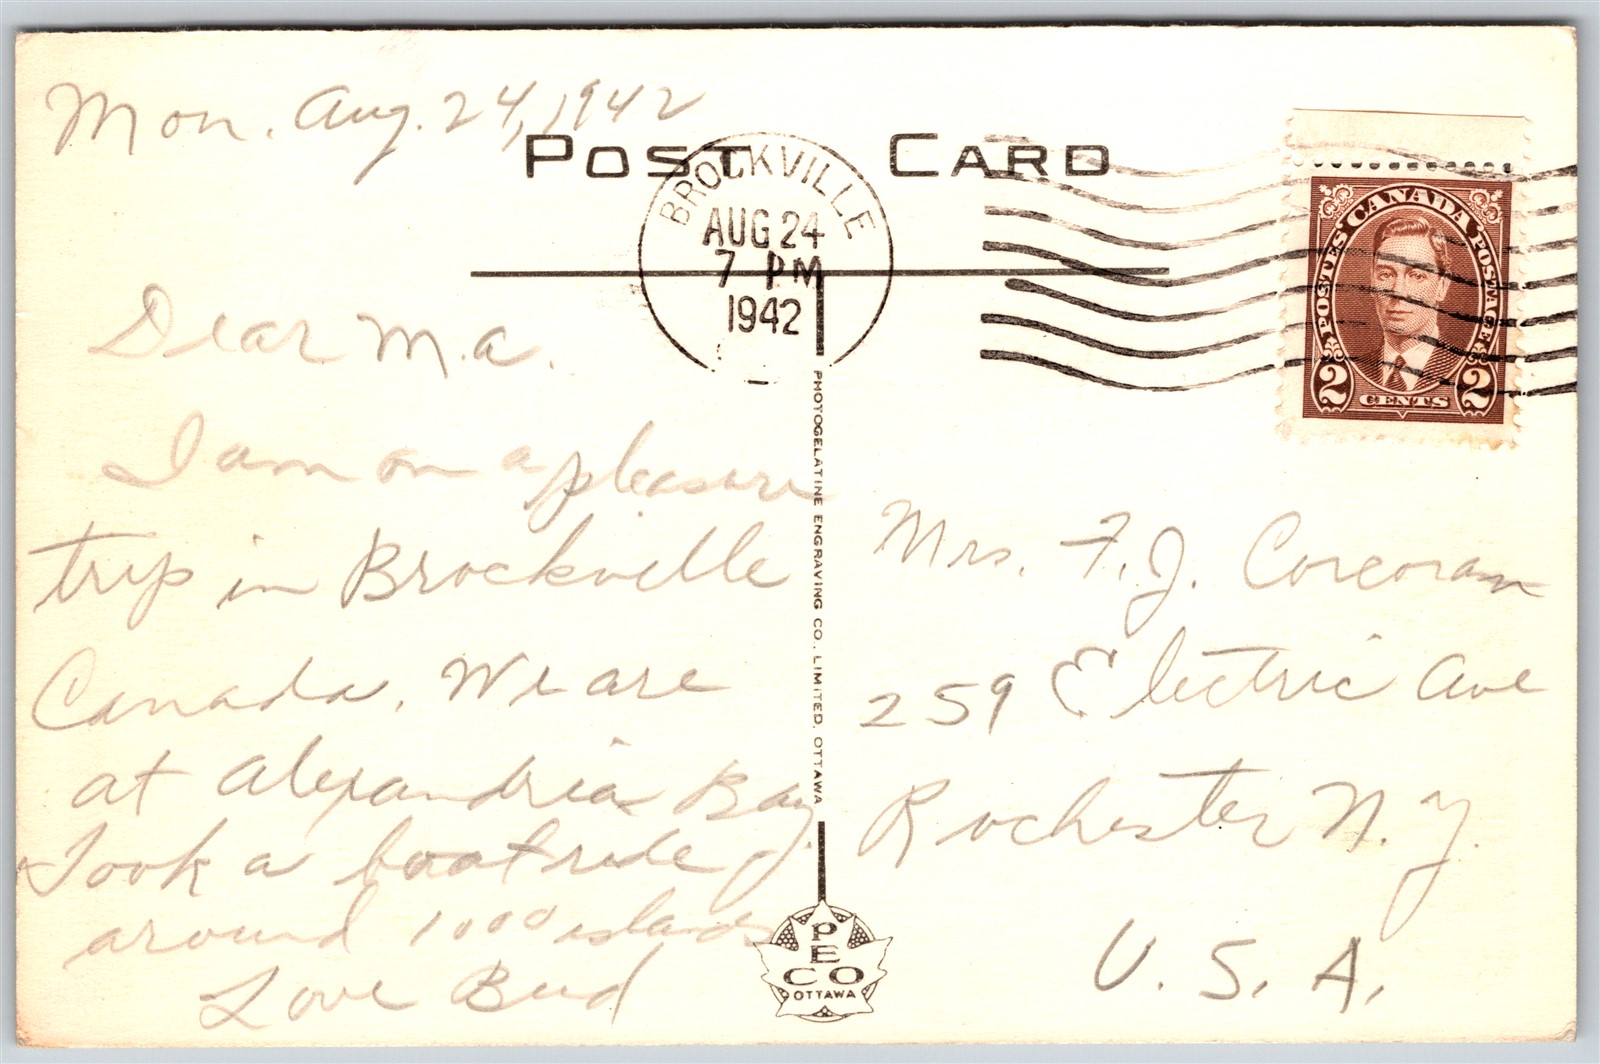 Mon. Aug. 24, 1942
POST CARD
BROCKVILLE
AUG 24
7 PM
1942
CANADA
POSTES POSTAGE
2 CENTS 2
Dear Ma.
I am on a pleasure
trip in Brockville
Canada. We are
at Alexandria Bay.
Took a boat ride
around 1000 islands
Love Bud
PHOTOGELATINE ENGRAVING CO., LIMITED, OTTAWA
Mrs. F. J. Corcoran
259 Electric Ave
Rochester N.Y.
U. S. A.
PECO
OTTAWA